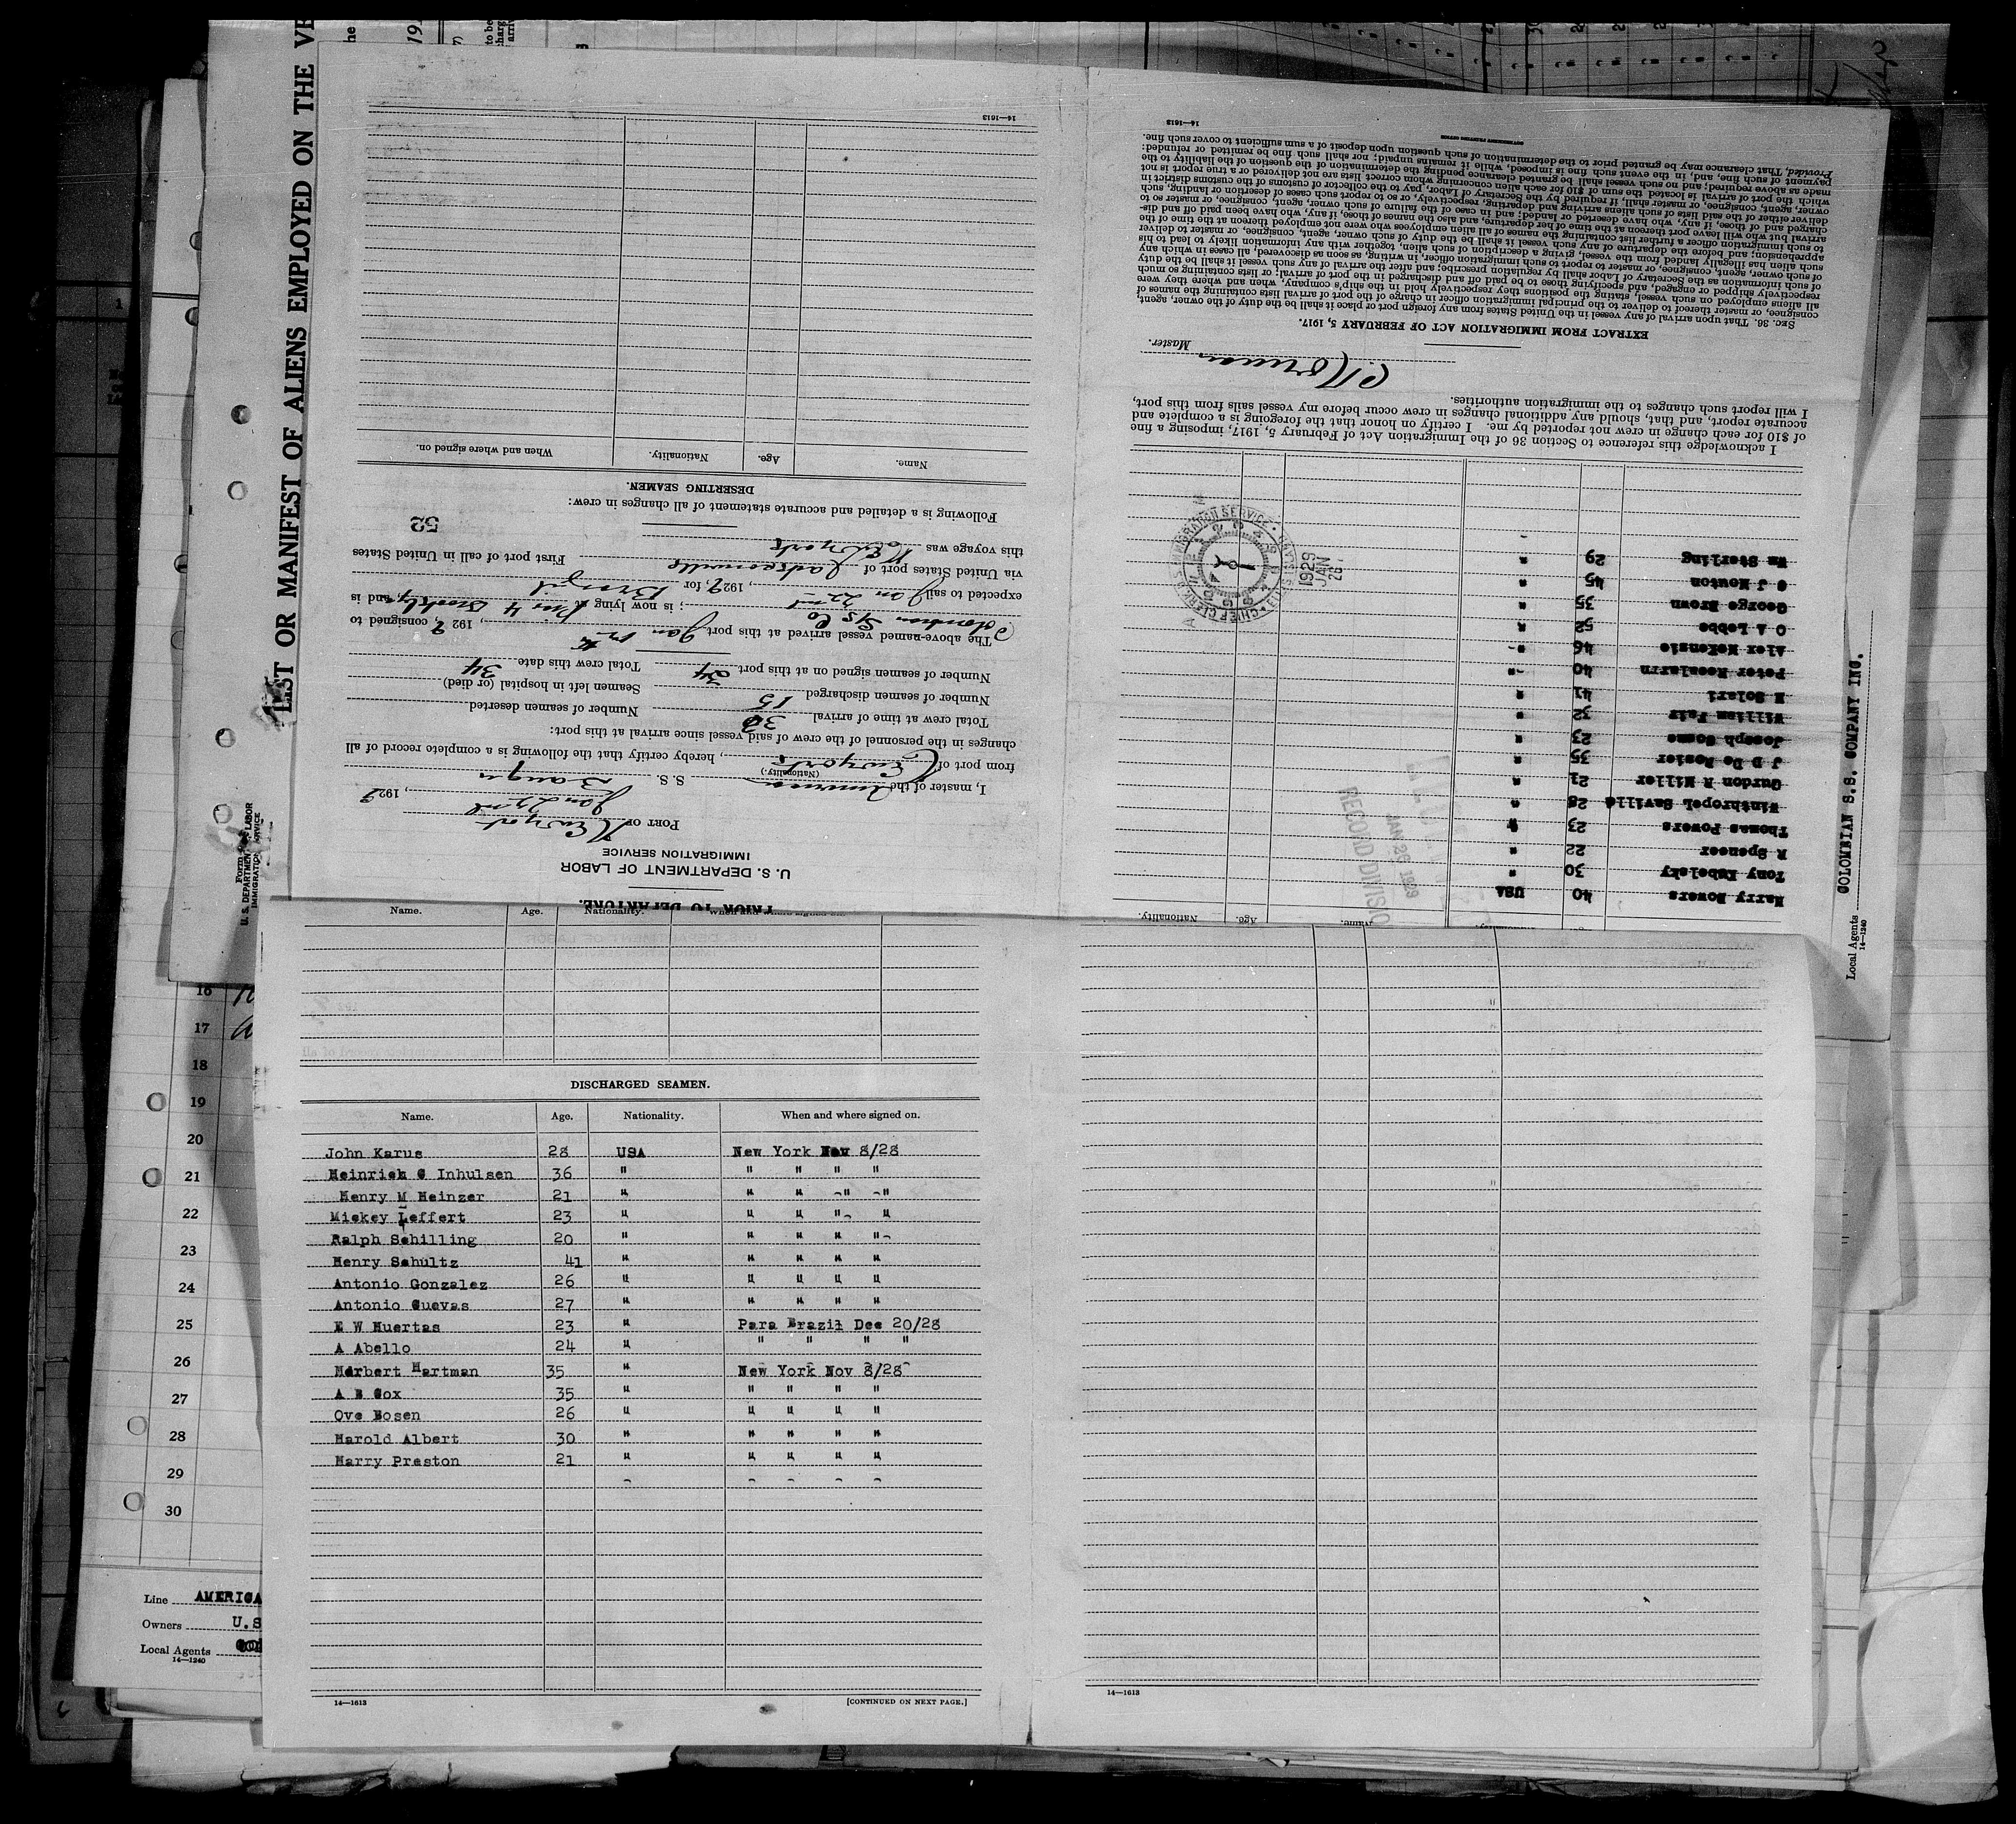 LIST OR MANIFEST OF ALIENS EMPLOYED ON THE
U. S. DEPARTMENT OF LABOR
IMMIGRATION SERVICE
PRIOR TO DEPARTURE.
U. S. DEPARTMENT OF LABOR
IMMIGRATION SERVICE
PORT OF New York
Jan 22nd, 1929
I, master of the American S. S. Bangu
(Nationality.)
from port of New York, hereby certify that the following is a complete record of all
changes in the personnel of the crew of said vessel since arrival at this port:
Total crew at time of arrival Number of seamen deserted
Number of seamen discharged 15 Seamen left in hospital (or died)
Number of seamen signed on at this port Total crew this date 34
The above-named vessel arrived at this port Jan, 1929 consigned to
Colombian SS Co; is now lying at Pier 4 Brooklyn, and is
expected to sail Jan 22nd, 1929, for Brazil
via United States port of Jacksonville First port of call in United States
this voyage was New York
52
Following is a detailed and accurate statement of all changes in crew:
DESERTING SEAMEN.
Name. Age. Nationality. When and where signed on.
14—1613
Name. Age. Nationality. When and where signed on.
DISCHARGED SEAMEN.
Name. Age. Nationality. When and where signed on.
John Karus 28 USA New York Nov 8/28
Heinrich G Inhulsen 36 " " " " "
Henry M Heinzer 21 " " " " "
Mickey Leffert 23 " " " " "
Ralph Schilling 20 " " " " "
Henry Schultz 41 " " " " "
Antonio Gonzalez 26 " " " " "
Antonio Cuevas 27 " " " " "
E W Huertas 23 " Para Brazil Dec 20/28
A Abello 24 " " " " "
Herbert Hartman 35 " New York Nov 8/28
A B Cox 35 " " " " "
Ove Bosen 26 " " " " "
Harold Albert 30 " " " " "
Harry Preston 21 " " " " "
14—1613 [CONTINUED ON NEXT PAGE.]
14—1613
Name. Age. Nationality.
Harry Bowers 40 USA
Tony Kubelsky 30 "
R Spencer 22 "
Thomas Powers 23 "
Winthropel Saville 28 "
Gurdon R Miller 21 "
J D De Rosier 35 "
Joseph Cosme 23 "
William Fair 32 "
M Solari 41 "
Peter Rosalarrn 40 "
Alex McKenzie 46 "
C A Lebbe 52 "
George Brown 35 "
C J Mouton 45 "
Wm Sterling 29 "
JAN 26 1929
RECORD DIVISIO
CHIEF CLERK U.S. IMMIGRATION SERVICE
1929
JAN
26
I acknowledge this reference to Section 36 of the Immigration Act of February 5, 1917, imposing a fine
of $10 for each change in crew not reported by me. I certify on honor that the foregoing is a complete and
accurate report, and that, should any additional changes in crew occur before my vessel sails from this port,
I will report such changes to the immigration authorities.
Master.
EXTRACT FROM IMMIGRATION ACT OF FEBRUARY 5, 1917.
SEC. 36. That upon arrival of any vessel in the United States from any foreign port or place it shall be the duty of the owner, agent,
consignee, or master thereof to deliver to the principal immigration officer in charge of the port of arrival lists containing the names of
all aliens employed on such vessel, stating the positions they respectively hold in the ship's company, when and where they were
respectively shipped or engaged, and specifying those to be paid off and discharged in the port of arrival; or lists containing so much
of such information as the Secretary of Labor shall by regulation prescribe; and after the arrival of any such vessel it shall be the duty
of such owner, agent, consignee, or master to report to such immigration officer, in writing, as soon as discovered, all cases in which any
such alien has illegally landed from the vessel, giving a description of such alien, together with any information likely to lead to his
apprehension; and before the departure of any such vessel it shall be the duty of such owner, agent, consignee, or master to deliver
to such immigration officer a further list containing the names of all alien employees who were not employed thereon at the time of the
arrival but who will leave port thereon at the time of her departure, and also the names of those, if any, who have been paid off and dis-
charged and of those, if any, who have deserted or landed; and in case of the failure of such owner, agent, consignee, or master so to
deliver either of the said lists of such aliens arriving and departing, respectively, or so to report such cases of desertion or landing, such
owner, agent, consignee, or master shall, if required by the Secretary of Labor, pay to the collector of customs of the customs district in
which the port of arrival is located the sum of $10 for each alien concerning whom correct lists are not delivered or a true report is not
made as above required; and no such vessel shall be granted clearance pending the determination of the question of the liability to the
payment of such fine, and, in the event such fine is imposed, while it remains unpaid; nor shall such fine be remitted or refunded:
Provided, That clearance may be granted prior to the determination of such question upon deposit of a sum sufficient to cover such fine.
GOVERNMENT PRINTING OFFICE
14—1613
Local Agents COLOMBIAN S.S. COMPANY INC.
14—1240
16
17
18
19
20
21
22
23
24
25
26
27
28
29
30
Line AMERICA
Owners U.S
Local Agents
14—1240